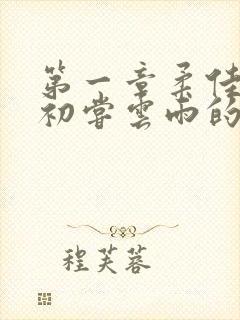 第一章柔佳
初尝雲雨的
程芙蓉